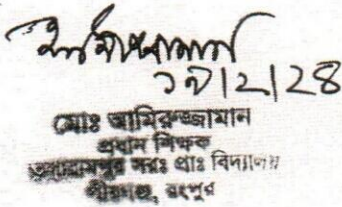 ১৭/2/28
মোঃ আমিরুজ্জামান
প্রধান শিক্ষক
সরঃ প্রাঃ বিদ্যালয়
পীরগঞ্জ, রংপুর